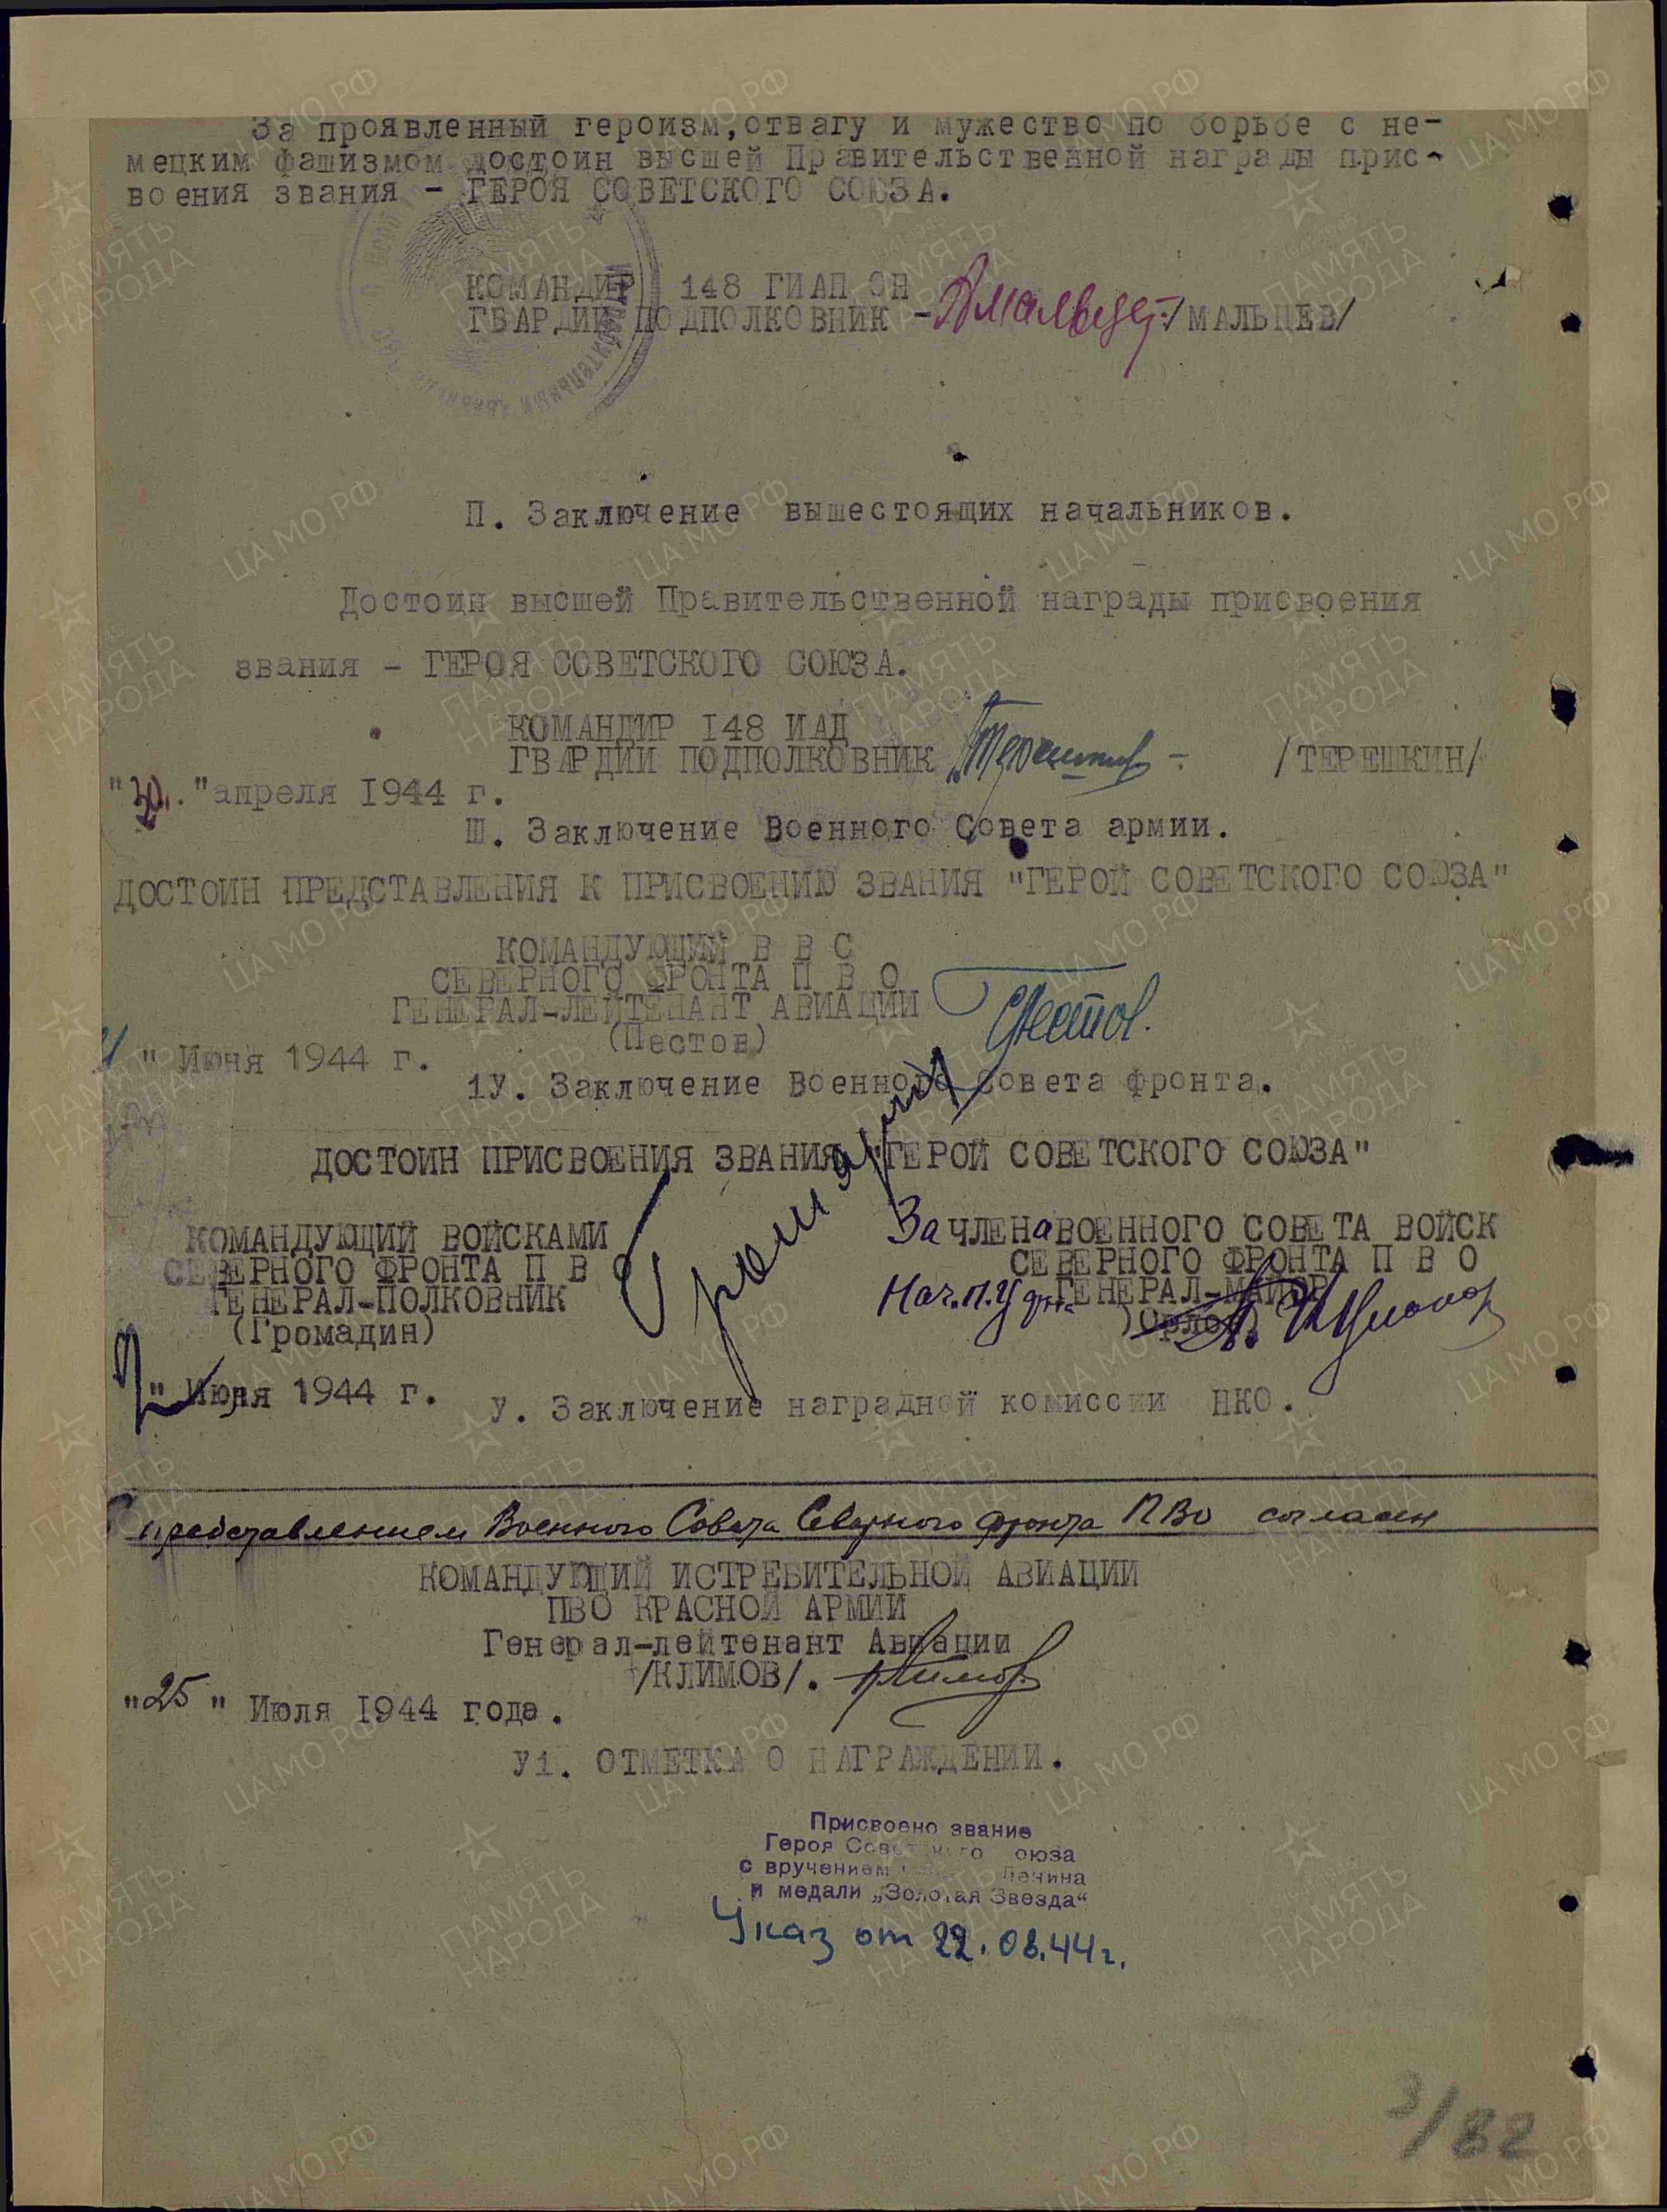 За проявленный героизм,отвагу и мужество по борьбе с не-
мецким фашизмом достоин высшей Правительственной награды прис-
воения звания - ГЕРОЯ СОВЕТСКОГО СОЮЗА.
КОМАНДИР 148 ГИАП ОН
ГВАРДИИ ПОДПОЛКОВНИК - /МАЛЬЦЕВ/
П. Заключение вышестоящих начальников.
Достоин высшей Правительственной награды присвоения
звания - ГЕРОЯ СОВЕТСКОГО СОЮЗА.
КОМАНДИР I48 ИАД
ГВАРДИИ ПОДПОЛКОВНИК /ТЕРЕШКИН/
"30." апреля I944 г.
Ш. Заключение Военного Совета армии.
ДОСТОИН ПРЕДСТАВЛЕНИЯ К ПРИСВОЕНИЮ ЗВАНИЯ "ГЕРОЙ СОВЕТСКОГО СОЮЗА"
КОМАНДУЮЩИЙ В В С
СЕВЕРНОГО ФРОНТА П В О
ГЕНЕРАЛ-ЛЕЙТЕНАНТ АВИАЦИИ
(Пестов)
Пестов.
" Июня 1944 г.
1У. Заключение Военного Совета фронта.
ДОСТОИН ПРИСВОЕНИЯ ЗВАНИЯ "ГЕРОЙ СОВЕТСКОГО СОЮЗА"
КОМАНДУЮЩИЙ ВОЙСКАМИ
СЕВЕРНОГО ФРОНТА П В О
ГЕНЕРАЛ-ПОЛКОВНИК
(Громадин)
Громадин
За ЧЛЕНа ВОЕННОГО СОВЕТА ВОЙСК
СЕВЕРНОГО ФРОНТА П В О
Нач.п.у фр-та ГЕНЕРАЛ-МАЙОР
(Орлов)
" Июля 1944 г.
У. Заключение наградной комиссии НКО.
С представлением Военного Совета Северного фронта ПВО согласен
КОМАНДУЮЩИЙ ИСТРЕБИТЕЛЬНОЙ АВИАЦИИ
ПВО КРАСНОЙ АРМИИ
Генерал-лейтенант Авиации
/КЛИМОВ/. Климов
"25" Июля I944 года.
У1. ОТМЕТКА О НАГРАЖДЕНИИ.
Присвоено звание
Героя Советского Союза
с вручением Ленина
и медали „Золотая Звезда“
Указ от 22.08.44г.
3/82
ЦА МО РФ
ПАМЯТЬ НАРОДА